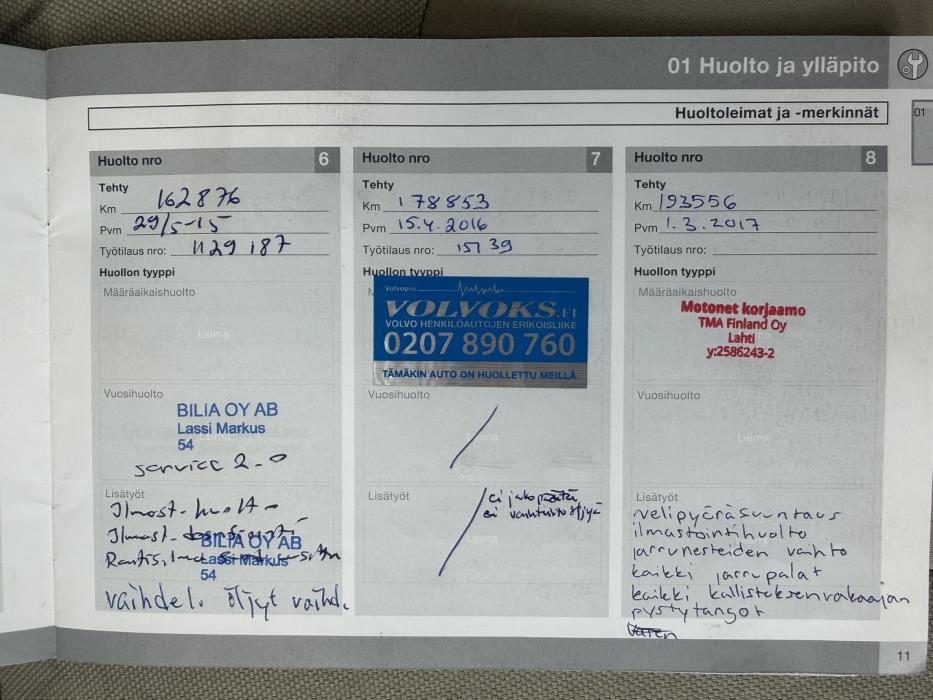 01 Huolto ja ylläpito
Huoltoleimat ja -merkinnät
01
Huolto nro 6
Tehty
Km 162876
Pvm 29/5-15
Työtilaus nro: 1129187
Huollon tyyppi
Määräaikaishuolto
Leima
Vuosihuolto
BILIA OY AB
Lassi Markus
54
service 2-0
Lisätyöt
Ilmast. huolt-
Ilmast.
Raitis.
BILIA OY AB
Lassi Markus
54
vaihdel. öljyt vaihd.
Huolto nro 7
Tehty
Km 178853
Pvm 15.4.2016
Työtilaus nro: 15739
Huollon tyyppi
Volvopro
VOLVOKS.FI
VOLVO HENKILÖAUTOJEN ERIKOISLIIKE
0207 890 760
TÄMÄKIN AUTO ON HUOLLETTU MEILLÄ
Vuosihuolto
Leima
Lisätyöt
ei jakopäätä,
ei vaihteisto öljyä
Leima
Huolto nro 8
Tehty
Km 193556
Pvm 1.3.2017
Työtilaus nro:
Huollon tyyppi
Määräaikaishuolto
Motonet korjaamo
TMA Finland Oy
Lahti
y:2586243-2
Vuosihuolto
Leima
Lisätyöt
nelipyöräsuuntaus
ilmastointihuolto
jarrunesteiden vaihto
kaikki jarrupalat
kaikki kallistuksenvakaajan
pystytangot
11